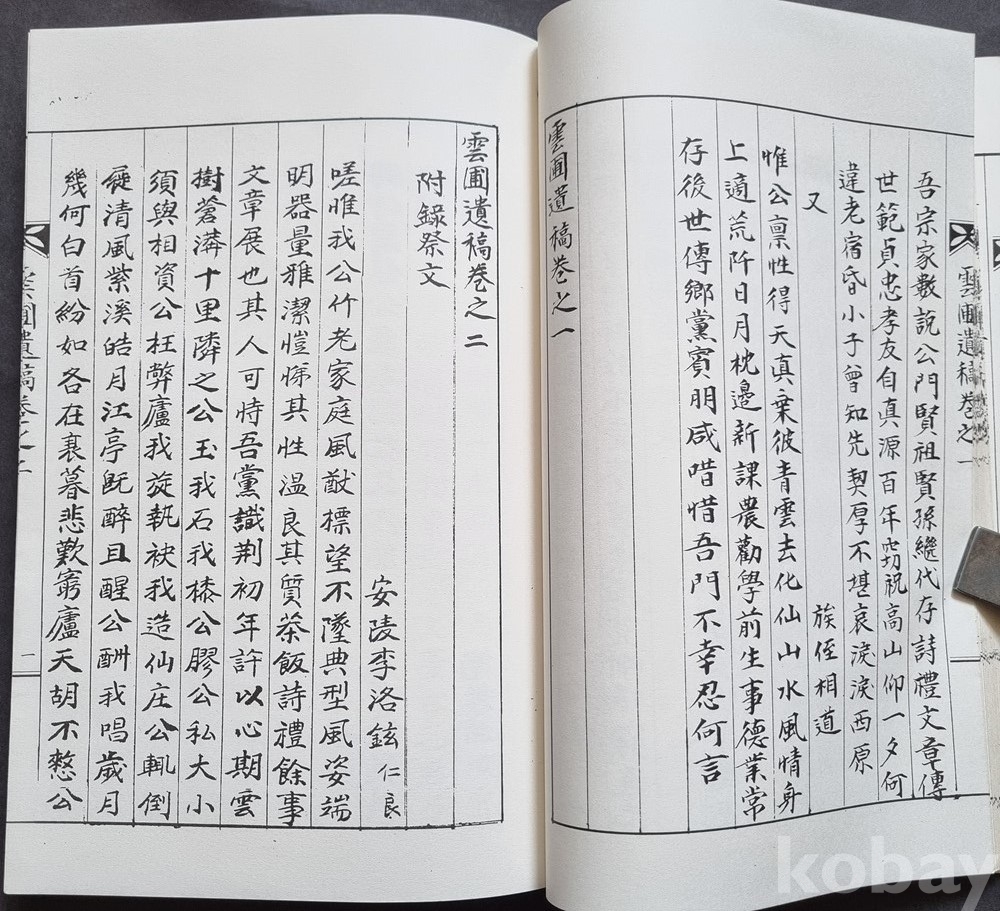 雲圃遺稿卷之一
吾宗家數說公門賢祖賢孫繼代存詩禮文章傳
世範貞忠孝友自真源百年窃祝高山仰一夕何
違老宿昏小子曾知先契厚不堪哀淚淚西原
又
族侄相道
惟公禀性得天真棄彼青雲去化仙山水風情身
上適荒阡日月枕邊新課農勸學前生事德業常
存後世傳鄉黨賓朋咸唶惜吾門不幸忍何言
雲圃遺稿卷之一
雲圃遺稿卷之二
附錄祭文
安陵李洛鉉仁良
嗟惟我公竹老家庭風猷標望不墜典型風姿端
明器量雅潔愷悌其性溫良其質茶飯詩禮餘事
文章展也其人可恃吾黨識荆初年許以心期雲
樹蒼潾十里隣之公玉我石我桼公膠公私大小
須與相資公枉弊廬我旋執袂我造仙庄公輒倒
屣清風紫溪皓月江亭旣醉且醒公酬我唱歲月
幾何白首紛如各在衰暮悲歎窮廬天胡不憗公
雲圃遺稿卷之二
一
kobay